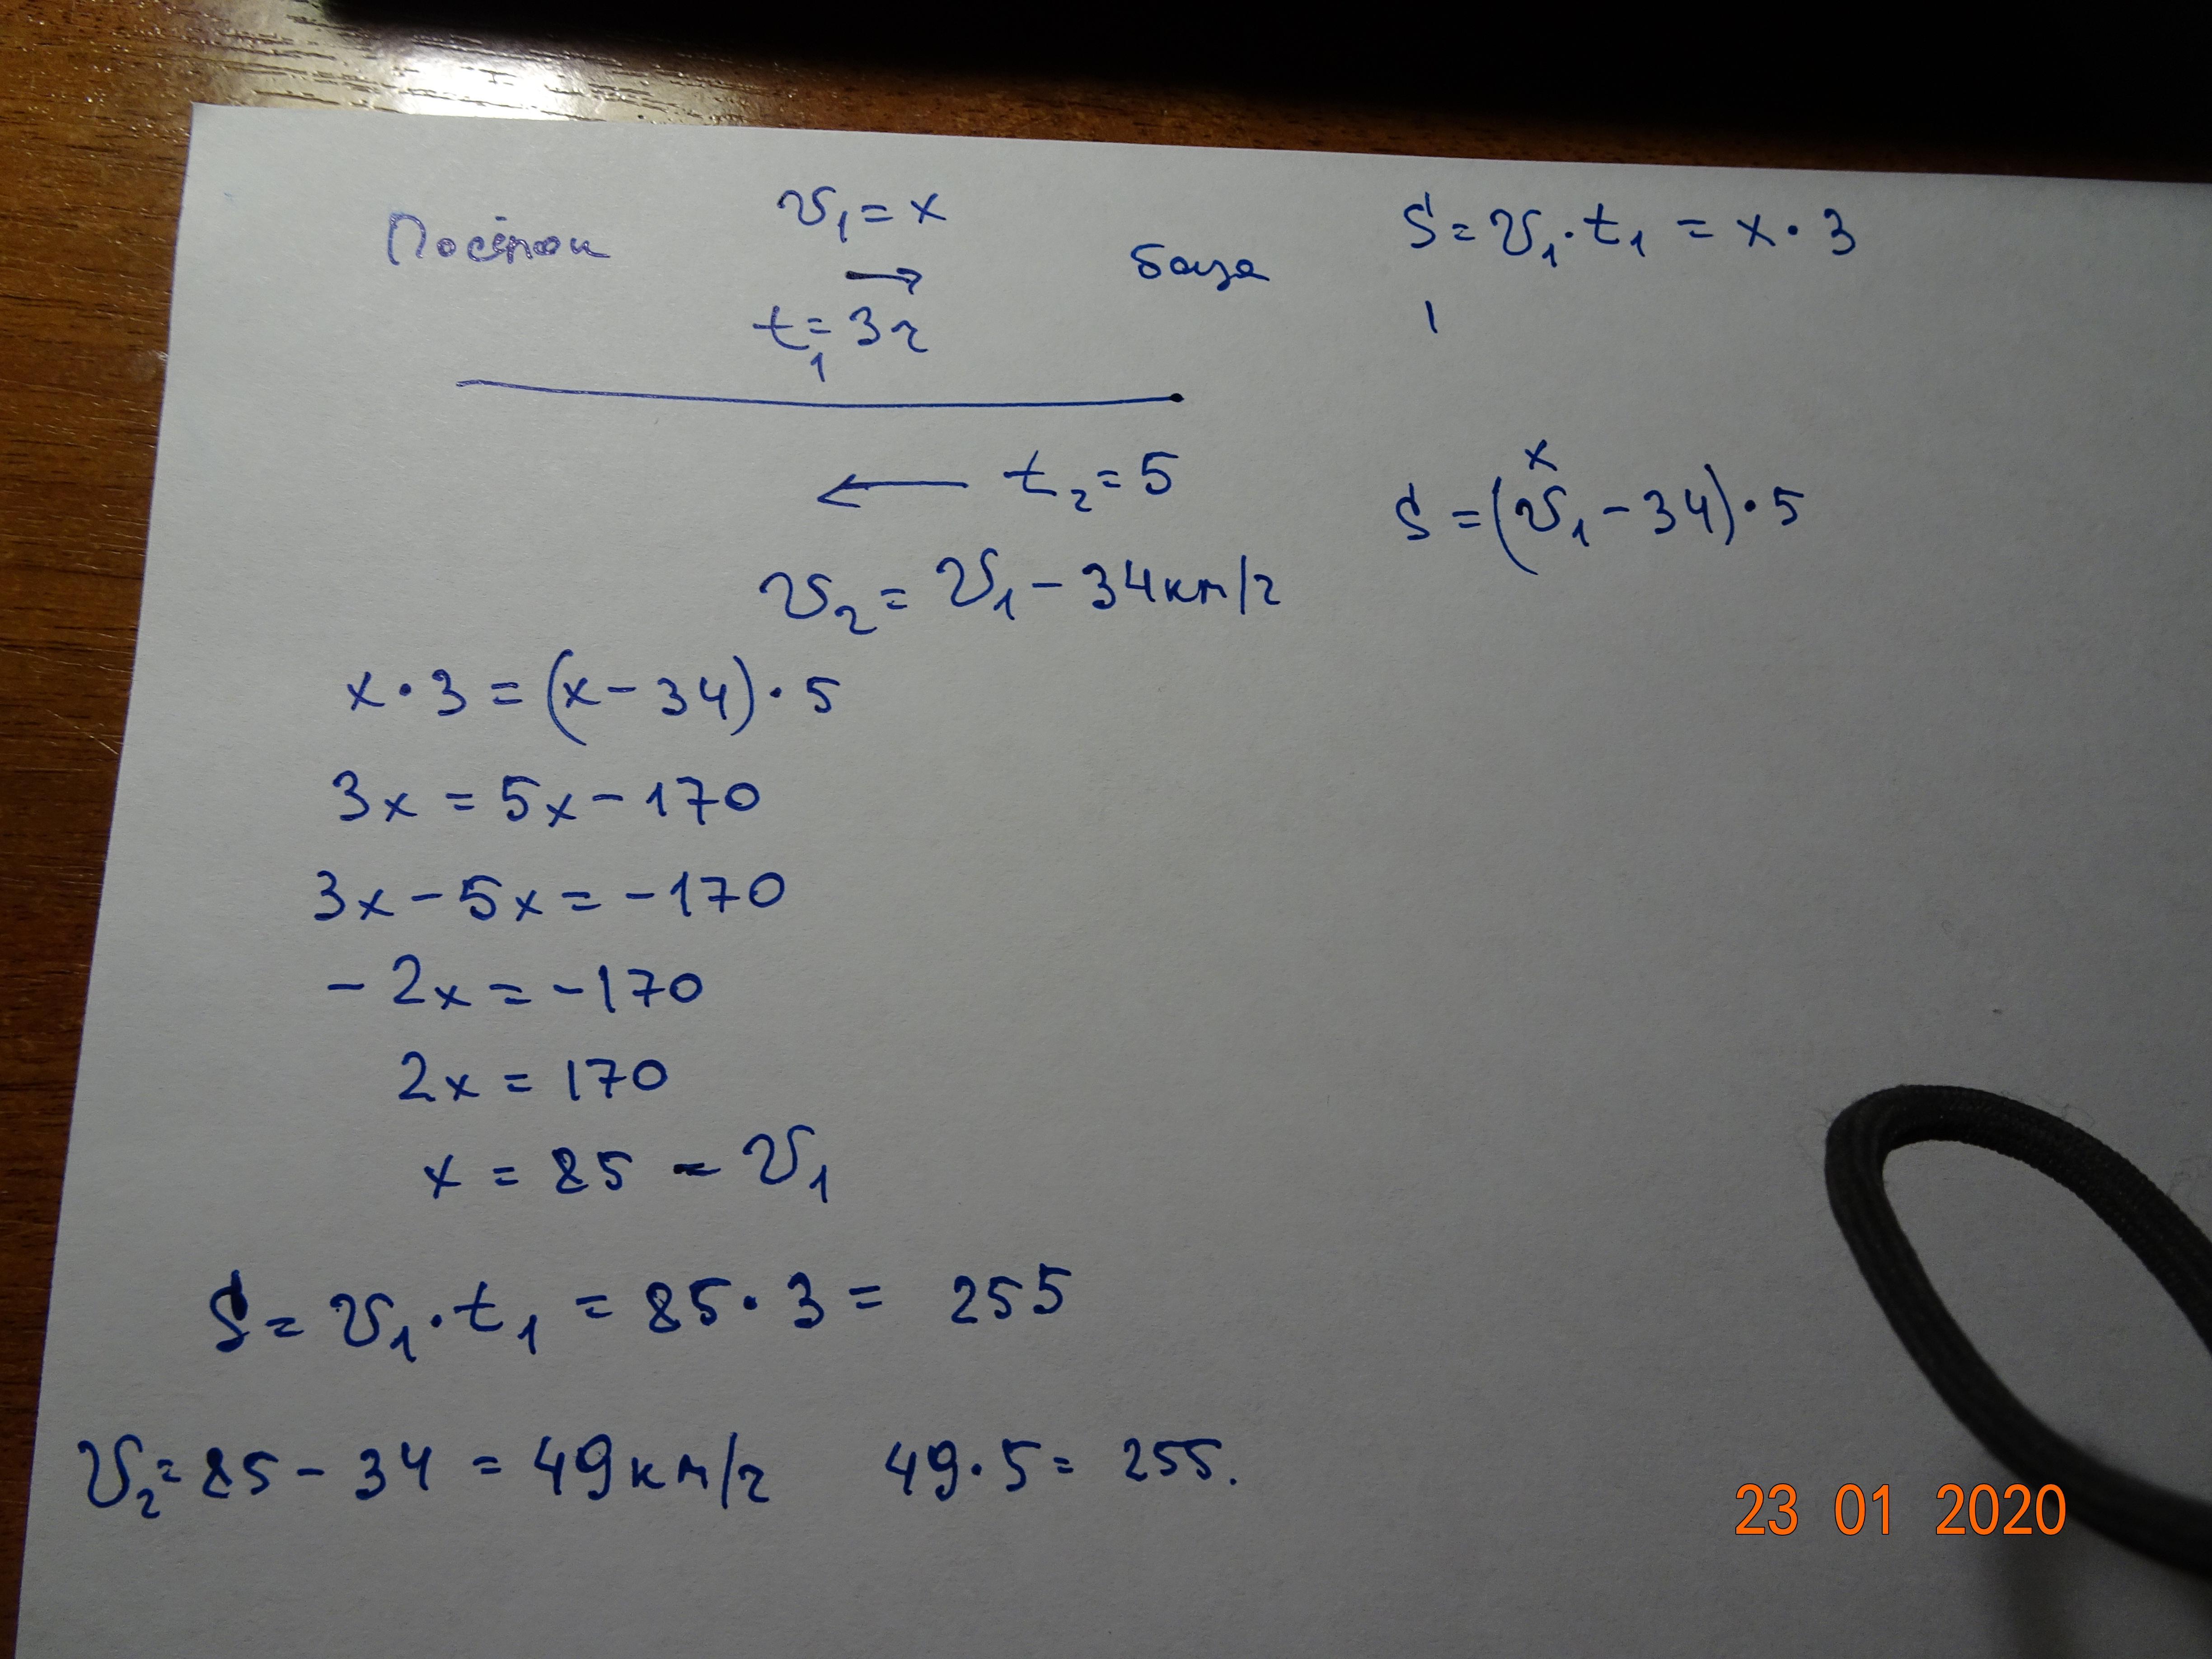 Посёлок
v₁ = x
база
t₁ = 3ч
t₂ = 5
v₂ = v₁ - 34км/ч
S = v₁ · t₁ = x · 3
x
S = (v₁ - 34) · 5
x · 3 = (x - 34) · 5
3x = 5x - 170
3x - 5x = -170
- 2x = -170
2x = 170
x = 85 - v₁
S = v₁ · t₁ = 85 · 3 = 255
v₂ = 85 - 34 = 49км/ч 49 · 5 = 255.
23 01 2020